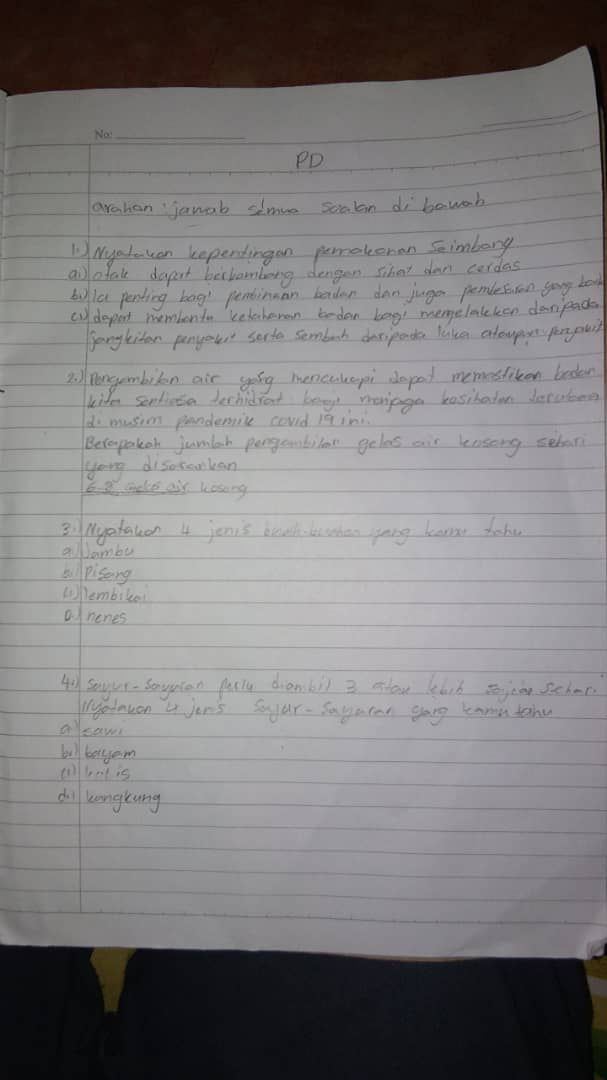 No:
PD
arahan : jawab semua soalan di bawah
1.) Nyatakan kepentingan pemakanan seimbang
a.) otak dapat berkambang dengan sihat dan cerdas
b.) Ia penting bagi pembinaan badan dan juga pembesaran yang baik
c.) dapat membantu ketahanan badan bagi mengelakkan daripada
jangkitan penyakit serta sembuh daripada luka ataupun penyakit
2.) Pengambilan air yang mencukupi dapat memastikan badan
kita sentiasa terhidrat bagi menjaga kesihatan
di musim pandemik covid 19 ini.
Berapakah jumlah pengambilan gelas air kosong sehari
yang disarankan
6-8 air kosong
3.) Nyatakan 4 jenis buah-buahan yang kamu tahu
a.) Jambu
b.) Pisang
c.) tembikai
d.) nenas
4.) Sayur-sayuran perlu diambil 3 atau lebih sajian sehari
Nyatakan 4 jenis sayur-sayuran yang kamu tahu
a.) sawi
b.) bayam
c.)
d.) kangkung